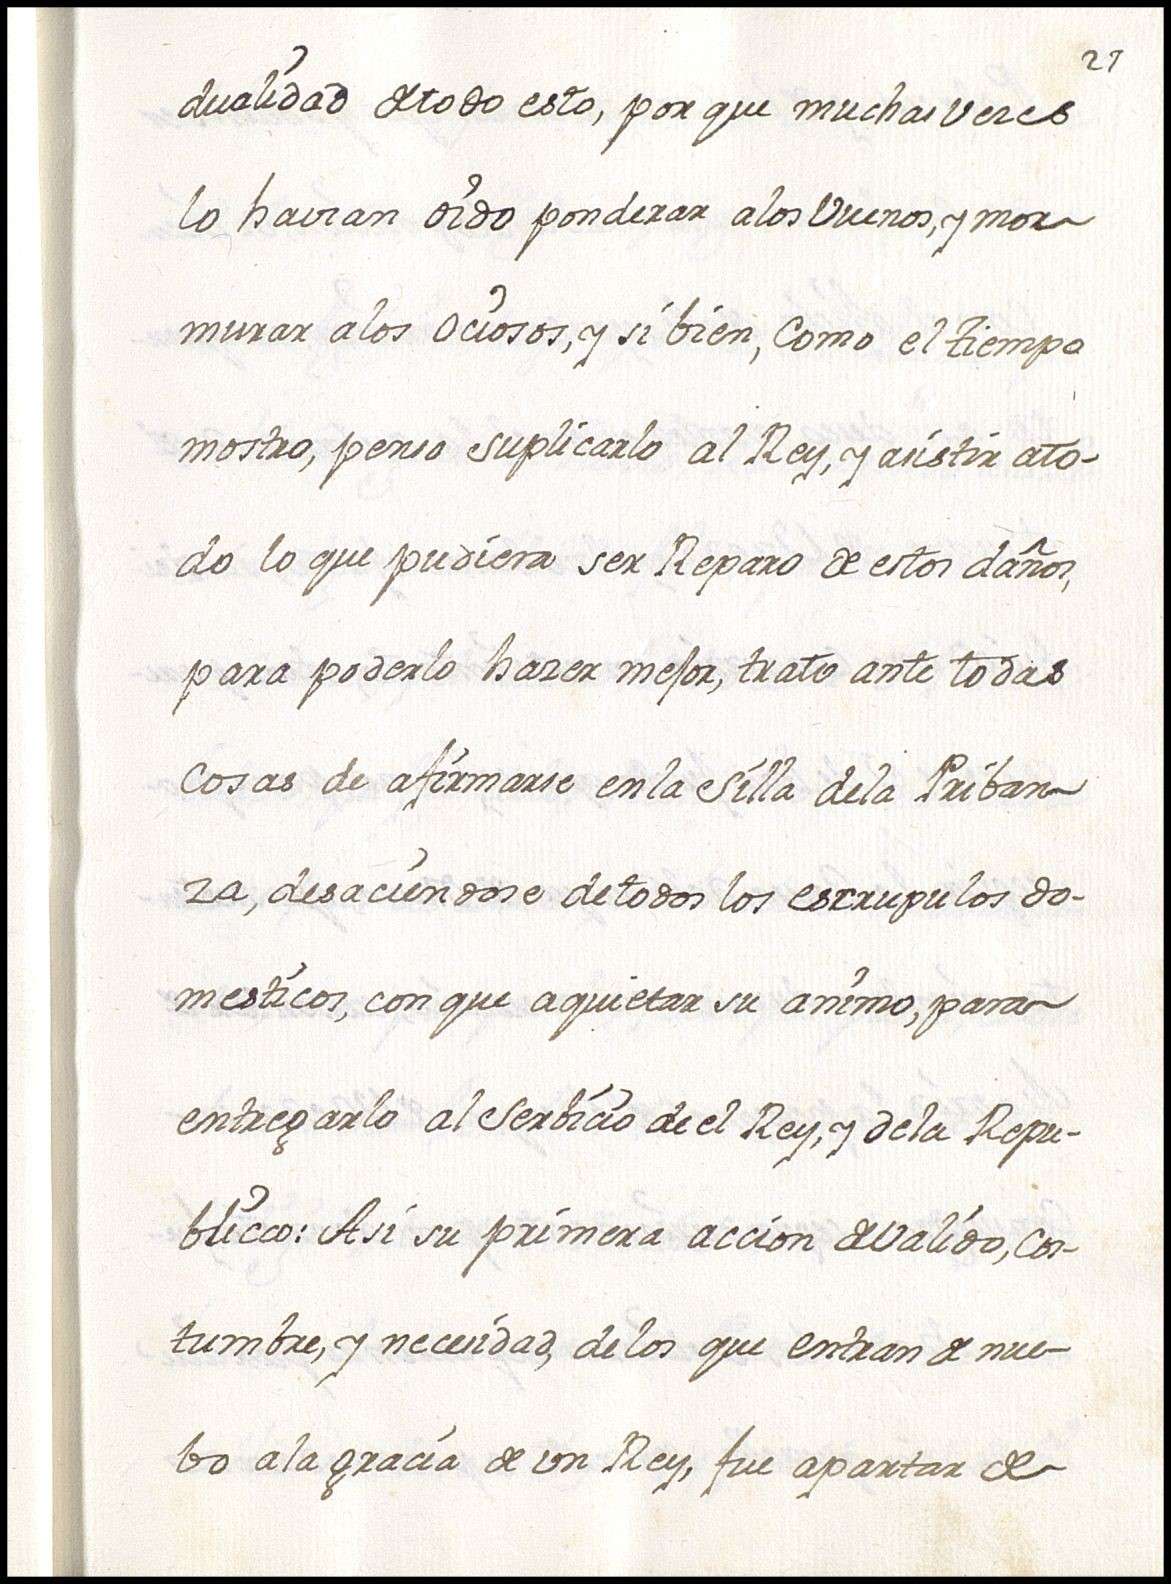 21
dualidad de todo esto, por que muchas veces
lo havian oido ponderar alos Vuenos, y mor-
murar alos Ociosos, y si bien, Como el tiempo
mostro, penso suplicarlo al Rey, y asistir ato-
do lo que pudiera ser Reparo de estos daños,
para poderlo hazer mejor, trato ante todas
Cosas de afirmarse enla Silla dela Priban-
za, desaciendose detodos los escrupulos do-
mesticos, con que aquietar su animo, para
entregarlo al Serbicio de el Rey, y dela Repu-
blica: Asi su primera accion de valido, cos-
tumbre, y necesidad, delos que entran de nue-
bo ala gracia de un Rey, fue apartar de